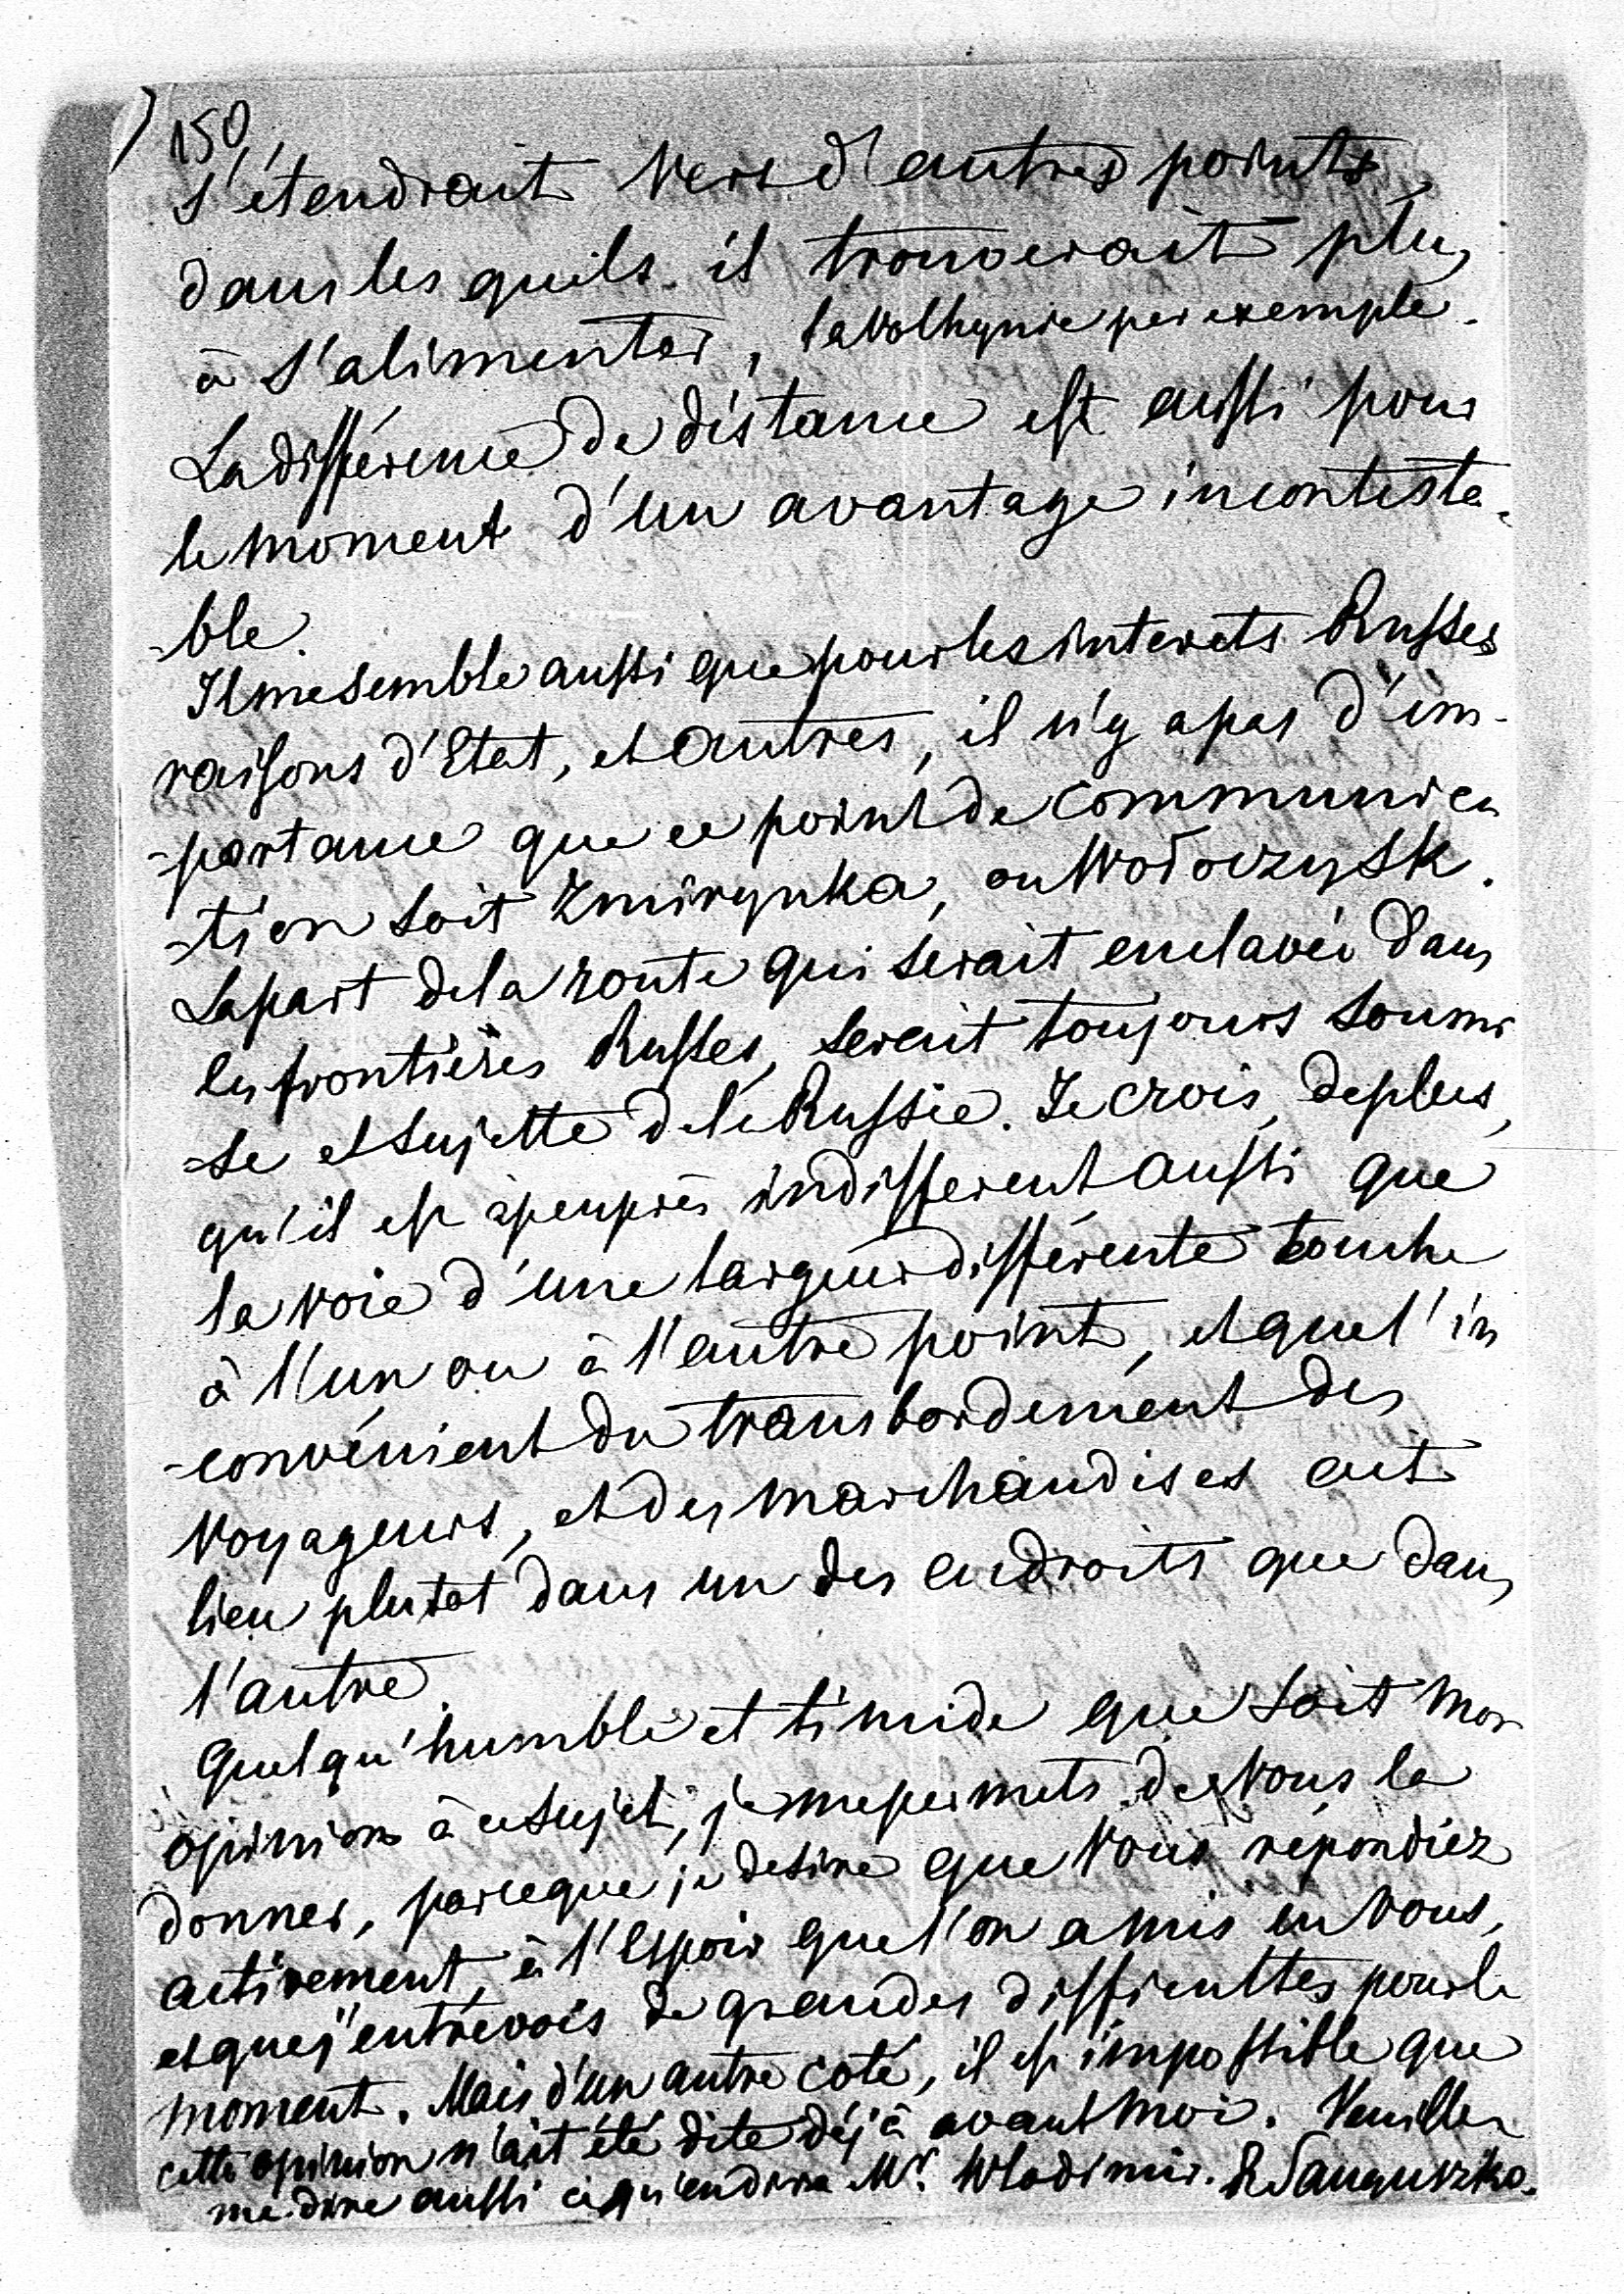 150
s'étendrait vers d'autres points
dans les quils il trouverait plus
à s'alimenter, la Volhynie par exemple.
La différence de distance est aussi pour
le moment d'un avantage incontesta-
-ble.
Il me semble aussi que pour les interets Russes
raisons d'Etat, et autres, il n'y a pas d'im-
-portance que ce point de communica
-tion soit Zmirynka, ou Wołoczysk.
La part de la route qui serait enclavée dans
les frontières Russes, serait toujours soumi
-se et sujette de la Russie. Je crois, de plus,
qu'il est àpeuprès indifferent aussi que
la voie d'une largeur différente touche
à l'un ou à l'autre point, et que l'in
-convénient du transbordement des
voyageurs, et des marchandises ait
lieu plutot dans un des endroits que dans
l'autre.
Quelqu'humble et timide que soit mon
opinion à ce sujet, je me permets de vous la
donner, parceque je desire que vous répondiez
activement, à l'espoir que l'on a mis en vous,
et que j'entrevois de grandes difficultes pour le
moment. Mais d'un autre coté, il est impossible que
cette opinion n'ait été dite déjà avant moi. Veuillez
me dire aussi ce qu'en dira Mr. Wladimir. R Sanguszko.